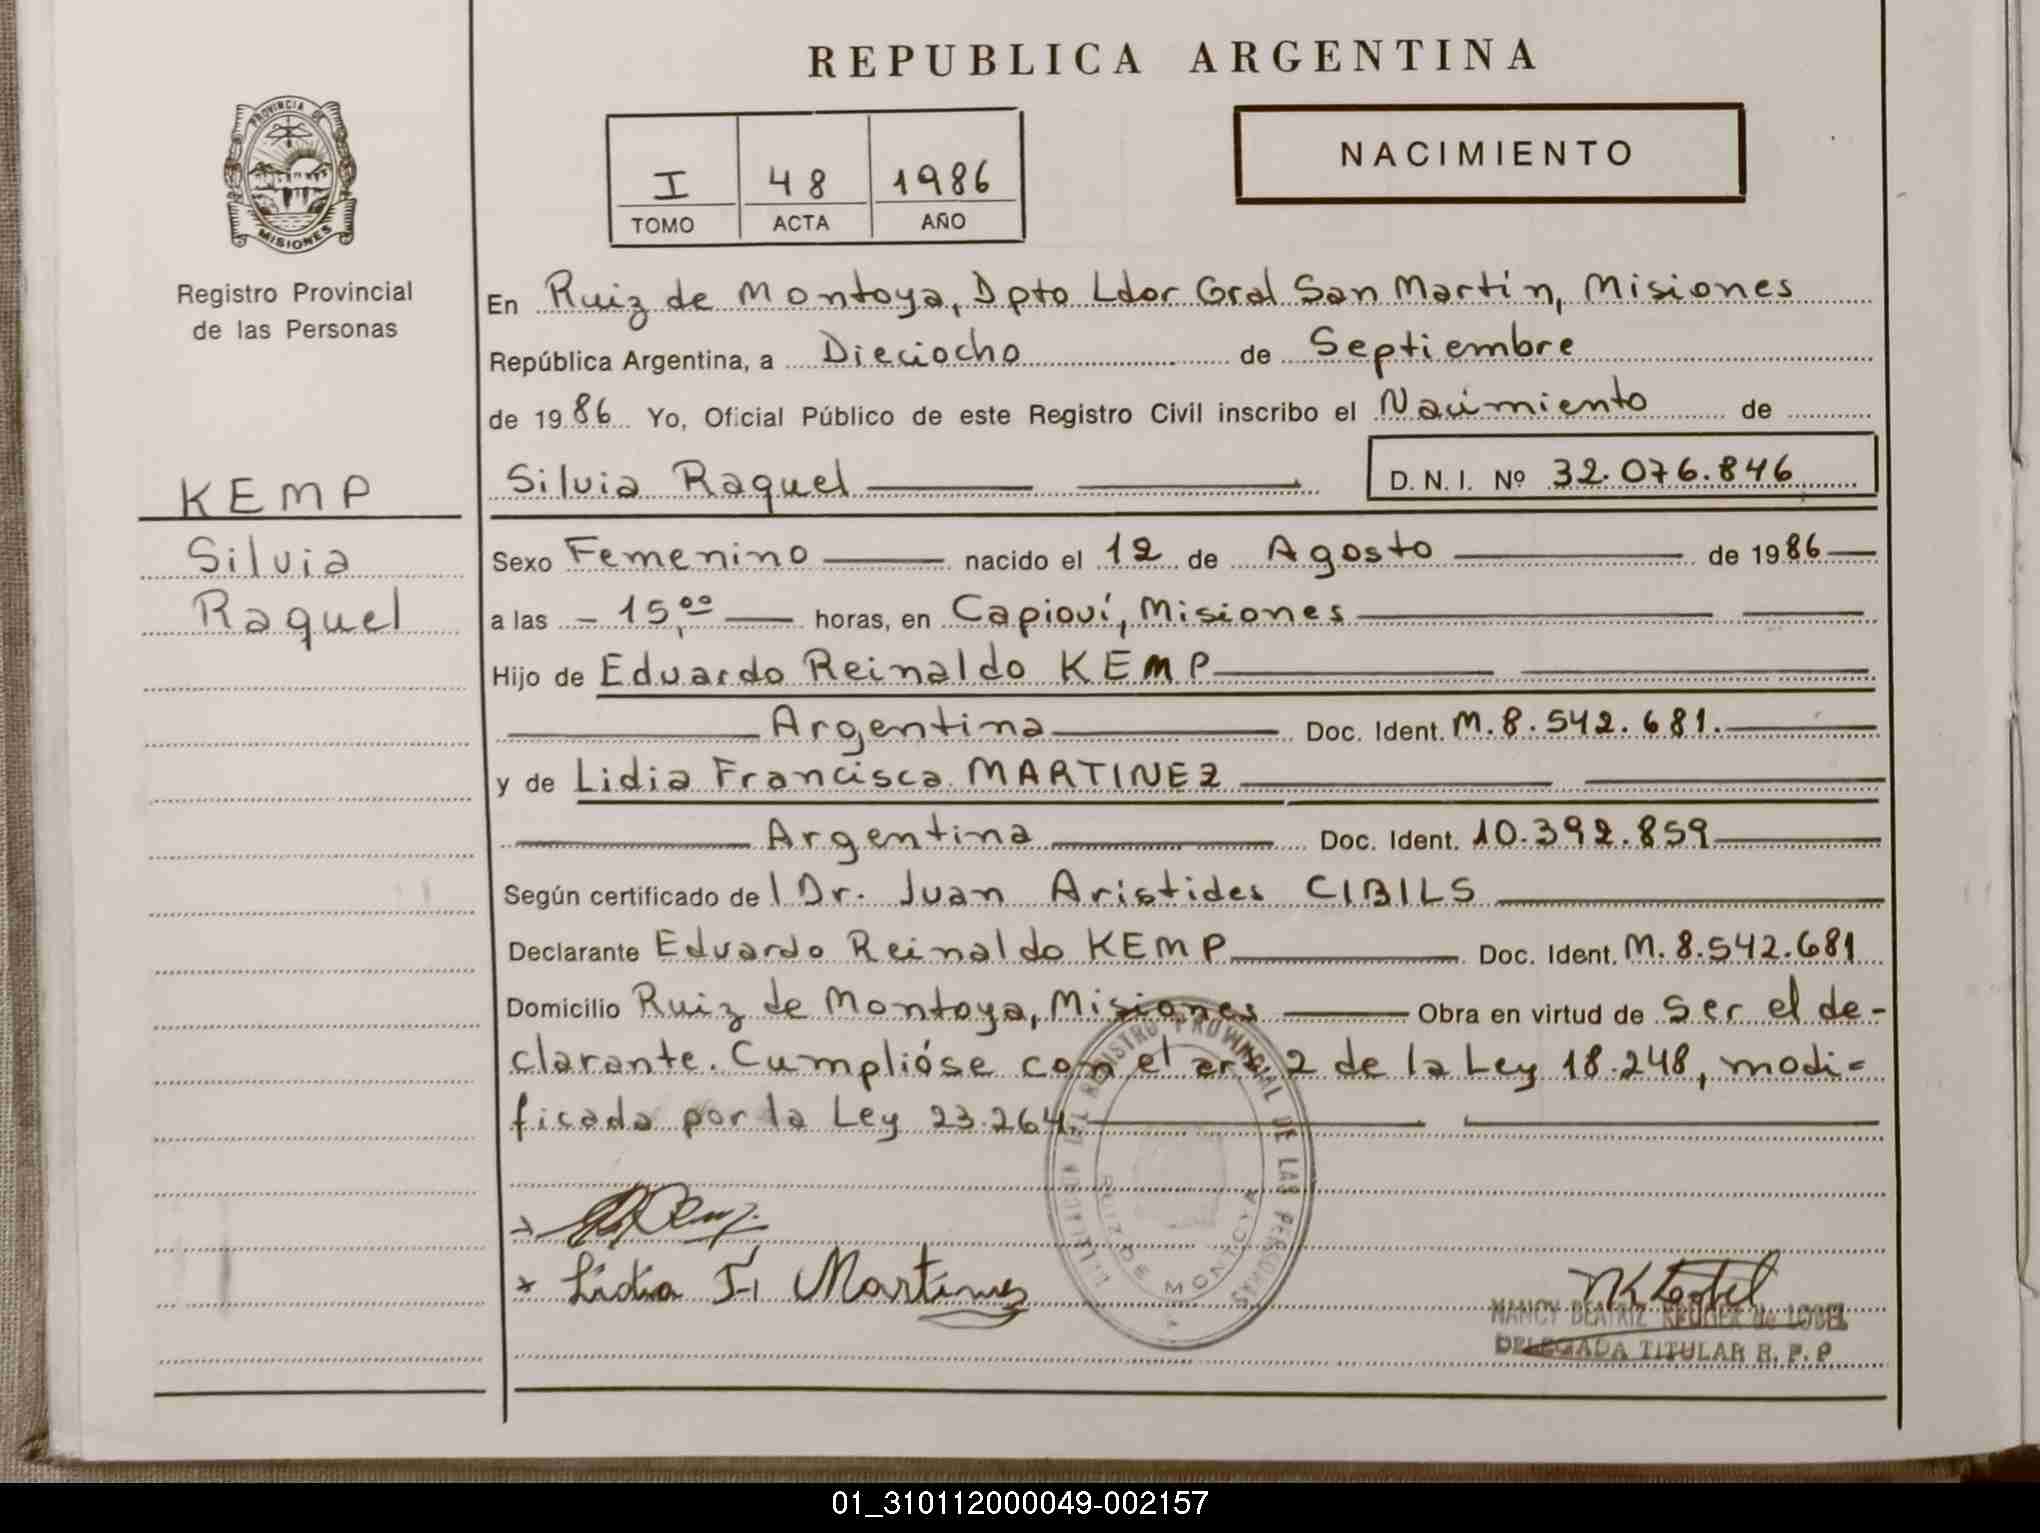 REPUBLICA ARGENTINA
PROVINCIA DE
MISIONES
Registro Provincial
de las Personas
I 48 1986
TOMO ACTA AÑO
NACIMIENTO
En Ruiz de Montoya, Dpto Ldor Gral San Martín, Misiones
República Argentina, a Dieciocho de Septiembre
de 1986 Yo, Oficial Público de este Registro Civil inscribo el Nacimiento de
KEMP
Silvia
Raquel
Silvia Raquel D. N. I. Nº 32.076.846
Sexo Femenino nacido el 12 de Agosto de 1986
a las - 15,00 horas, en Capioví, Misiones
Hijo de Eduardo Reinaldo KEMP
Argentina Doc. Ident. M. 8.542.681.
y de Lidia Francisca MARTINEZ
Argentina Doc. Ident. 10.392.859
Según certificado de l Dr. Juan Aristides CIBILS
Declarante Eduardo Reinaldo KEMP Doc. Ident. M. 8.542.681
Domicilio Ruiz de Montoya, Misiones Obra en virtud de ser el de-
clarante. Cumplióse con el art. 2 de la Ley 18.248, modi=
ficada por la Ley 23.264.
DEL REGISTRO PROVINCIAL DE LAS PERSONAS
RUIZ DE MONTOYA
Lidia F. Martinez
NANCY BEATRIZ KRUGER de LOBEL
DELEGADA TITULAR R. P. P
01_310112000049-002157